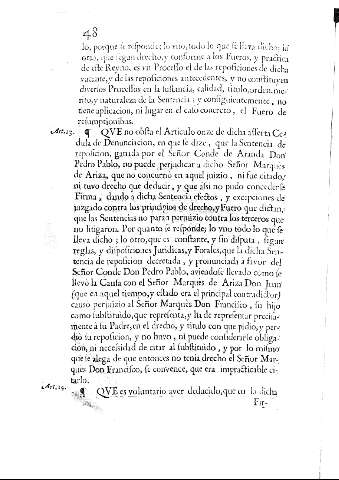 48
lo, porque se responde: lo vno, todo lo que se lleva dicho: lo
otro, que segun drecho, y conforme a los Fueros, y practica
de este Reyno, es vn Processo el de las reposiciones de dicha
vacante, y de las reposiciones antecedentes, y no constituyen
diversos Processos en la sustancia, calidad, titulo, orden, me-
rito, y naturaleza de la Sentencia: y consiguientemente, no
tiene aplicacion, ni lugar en el caso concreto, el Fuero de
resumptionibus.
Art. 13. ¶ QVE no obsta el Articulo onze de dicha asserta Ce-
dula de Denunciacion, en que se dize, que la Sentencia de
reposicion, ganada por el Señor Conde de Aranda Don
Pedro Pablo, no puede perjudicar a dicho Señor Marques
de Ariza, que no concurriò en aquel juizio, ni fue citado,
ni tuvo drecho que deducir, y que assi no pudo concederse
Firma, dando à dicha Sentencia efectos, y excepciones de
juzgado contra los principios de drecho, y Fuero que dictan,
que las Sentencias no paran perjuizio contra los terceros que
no litigaron. Por quanto se responde; lo vno todo lo que se
lleva dicho; lo otro, que es constante, y sin disputa, segun
reglas, y disposiciones Juridicas, y Forales, que la dicha Sen-
tencia de reposicion decretada, y pronunciada à favor del
Señor Conde Don Pedro Pablo, aviendose llevado como se
llevò la Causa con el Señor Marques de Ariza Don Juan
(que en aquel tiempo, y estado era el principal contradictor)
causò perjuizio al Señor Marques Don Francisco, su hijo
como substituido, que representa, y ha de representar precisa-
mente à su Padre, en el drecho, y titulo con que pidiò, y per-
diò su reposicion, y no huvo, ni puede considerarse obliga-
cion, ni necesidad de citar al substituido, y por lo mismo
que se alega de que entonces no tenia drecho el Señor Mar-
ques Don Francisco, se convence, que era impracticable ci-
tarlo.
Art. 14. ¶ QVE es voluntario aver deducido, que en la dicha
Fir-